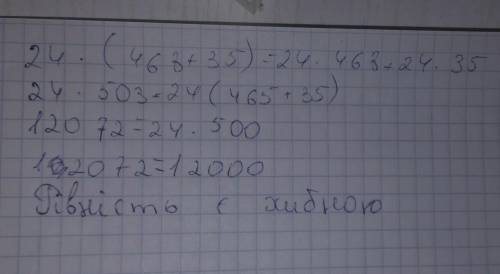 24 · (463+35)=24 · 463+24 · 35
24 · 503=24(465+35)
12072=24 · 500
12072=12000
Рівність є хибною